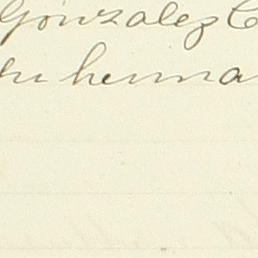 Gonzalez C
su herma